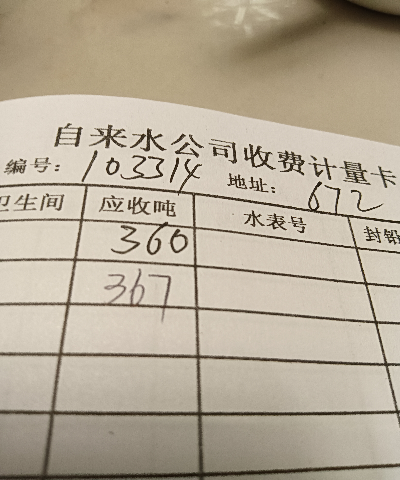 自来水公司收费计量卡
编号：103314 地址：672
卫生间 应收吨 水表号 封铅
360
367